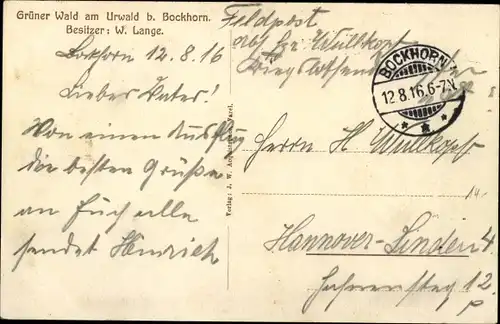 Grüner Wald am Urwald b. Bockhorn.
Besitzer: W. Lange.
Feldpost
Bockhorn 12.8.16
Lieber Vater!
Von einem Ausflug
die besten Grüße
an Euch alle
sendet Hinrich
BOCKHORN
12.8.16.6-7N.
Herrn H Wullkopf
Hannover-Linden 4.
12
Verlag: J. W.